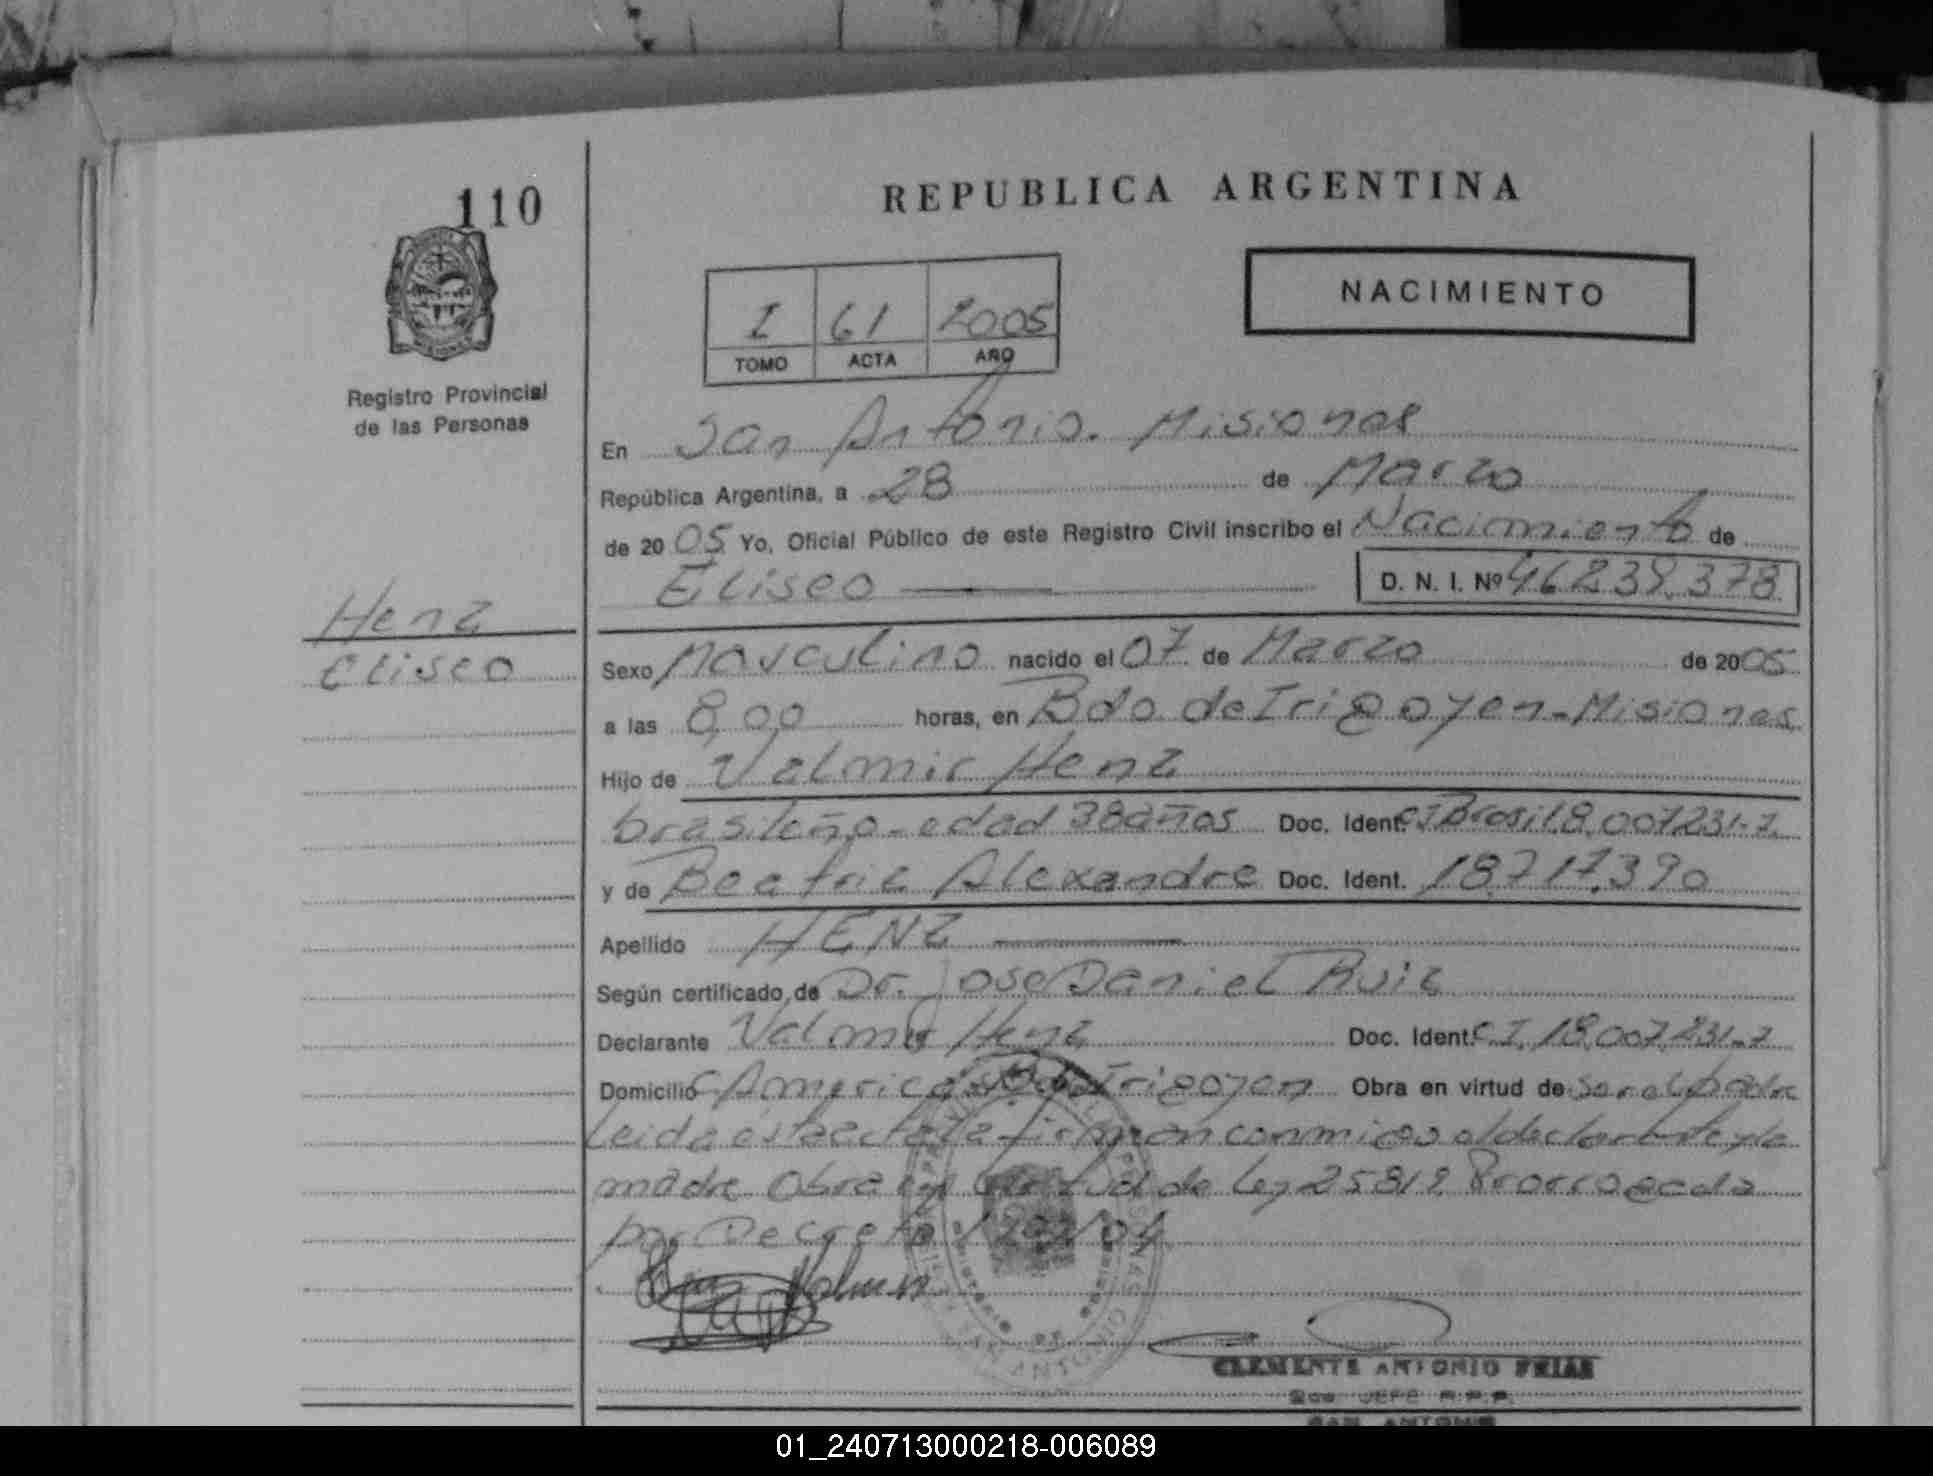 110
REPUBLICA ARGENTINA
NACIMIENTO
I 61 2005
TOMO ACTA AÑO
Registro Provincial
de las Personas
En San Antonio. Misiones
República Argentina, a 28 de Marzo
de 2005 Yo, Oficial Público de este Registro Civil inscribo el Nacimiento de
Eliseo D. N. I. Nº 46.239.378
Henz
Eliseo
Sexo Masculino nacido el 07 de Marzo de 2005
a las 8,00 horas, en Bdo de Irigoyen - Misiones
Hijo de Valmir Henz
brasileño - edad 38 años Doc. Ident. CI Brasil 8.007.231-7
y de Beatriz Alexandre Doc. Ident. 18.717.390
Apellido HENZ
Según certificado de Dr. Jose Daniel Ruiz
Declarante Valmir Henz Doc. Ident. C.I. 18.007.231-7
Domicilio C America Bdo Irigoyen Obra en virtud de ser el padre
Leida este acta la firman conmigo el declarante y la
madre Obra en virtud de Ley 25819 Prorrogada
por Decreto /04
CLEMENTE ANTONIO FRIAS
JEFE R.P.P.
SAN ANTONIO
01_240713000218-006089